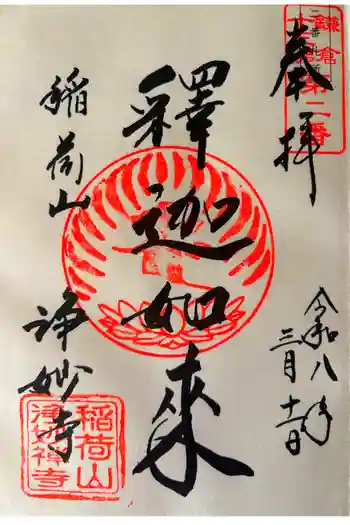 鎌倉
第二番
奉拝
令和八年
三月十一日
釋迦如来
稲荷山
浄妙寺
稲荷山
浄妙禅寺